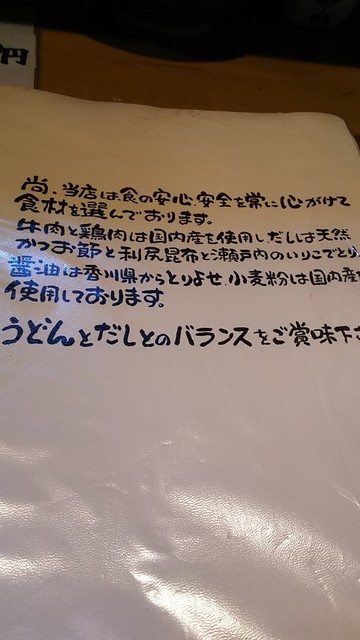 円
尚、当店は食の安心、安全を常に心がけて
食材を選んでおります。
牛肉と鶏肉は国内産を使用し、だしは天然
かつお節と利尻昆布と瀬戸内のいりこでとり
醤油は香川県からとりよせ、小麦粉は国内産
使用しております。
うどんとだしとのバランスをご賞味下さ